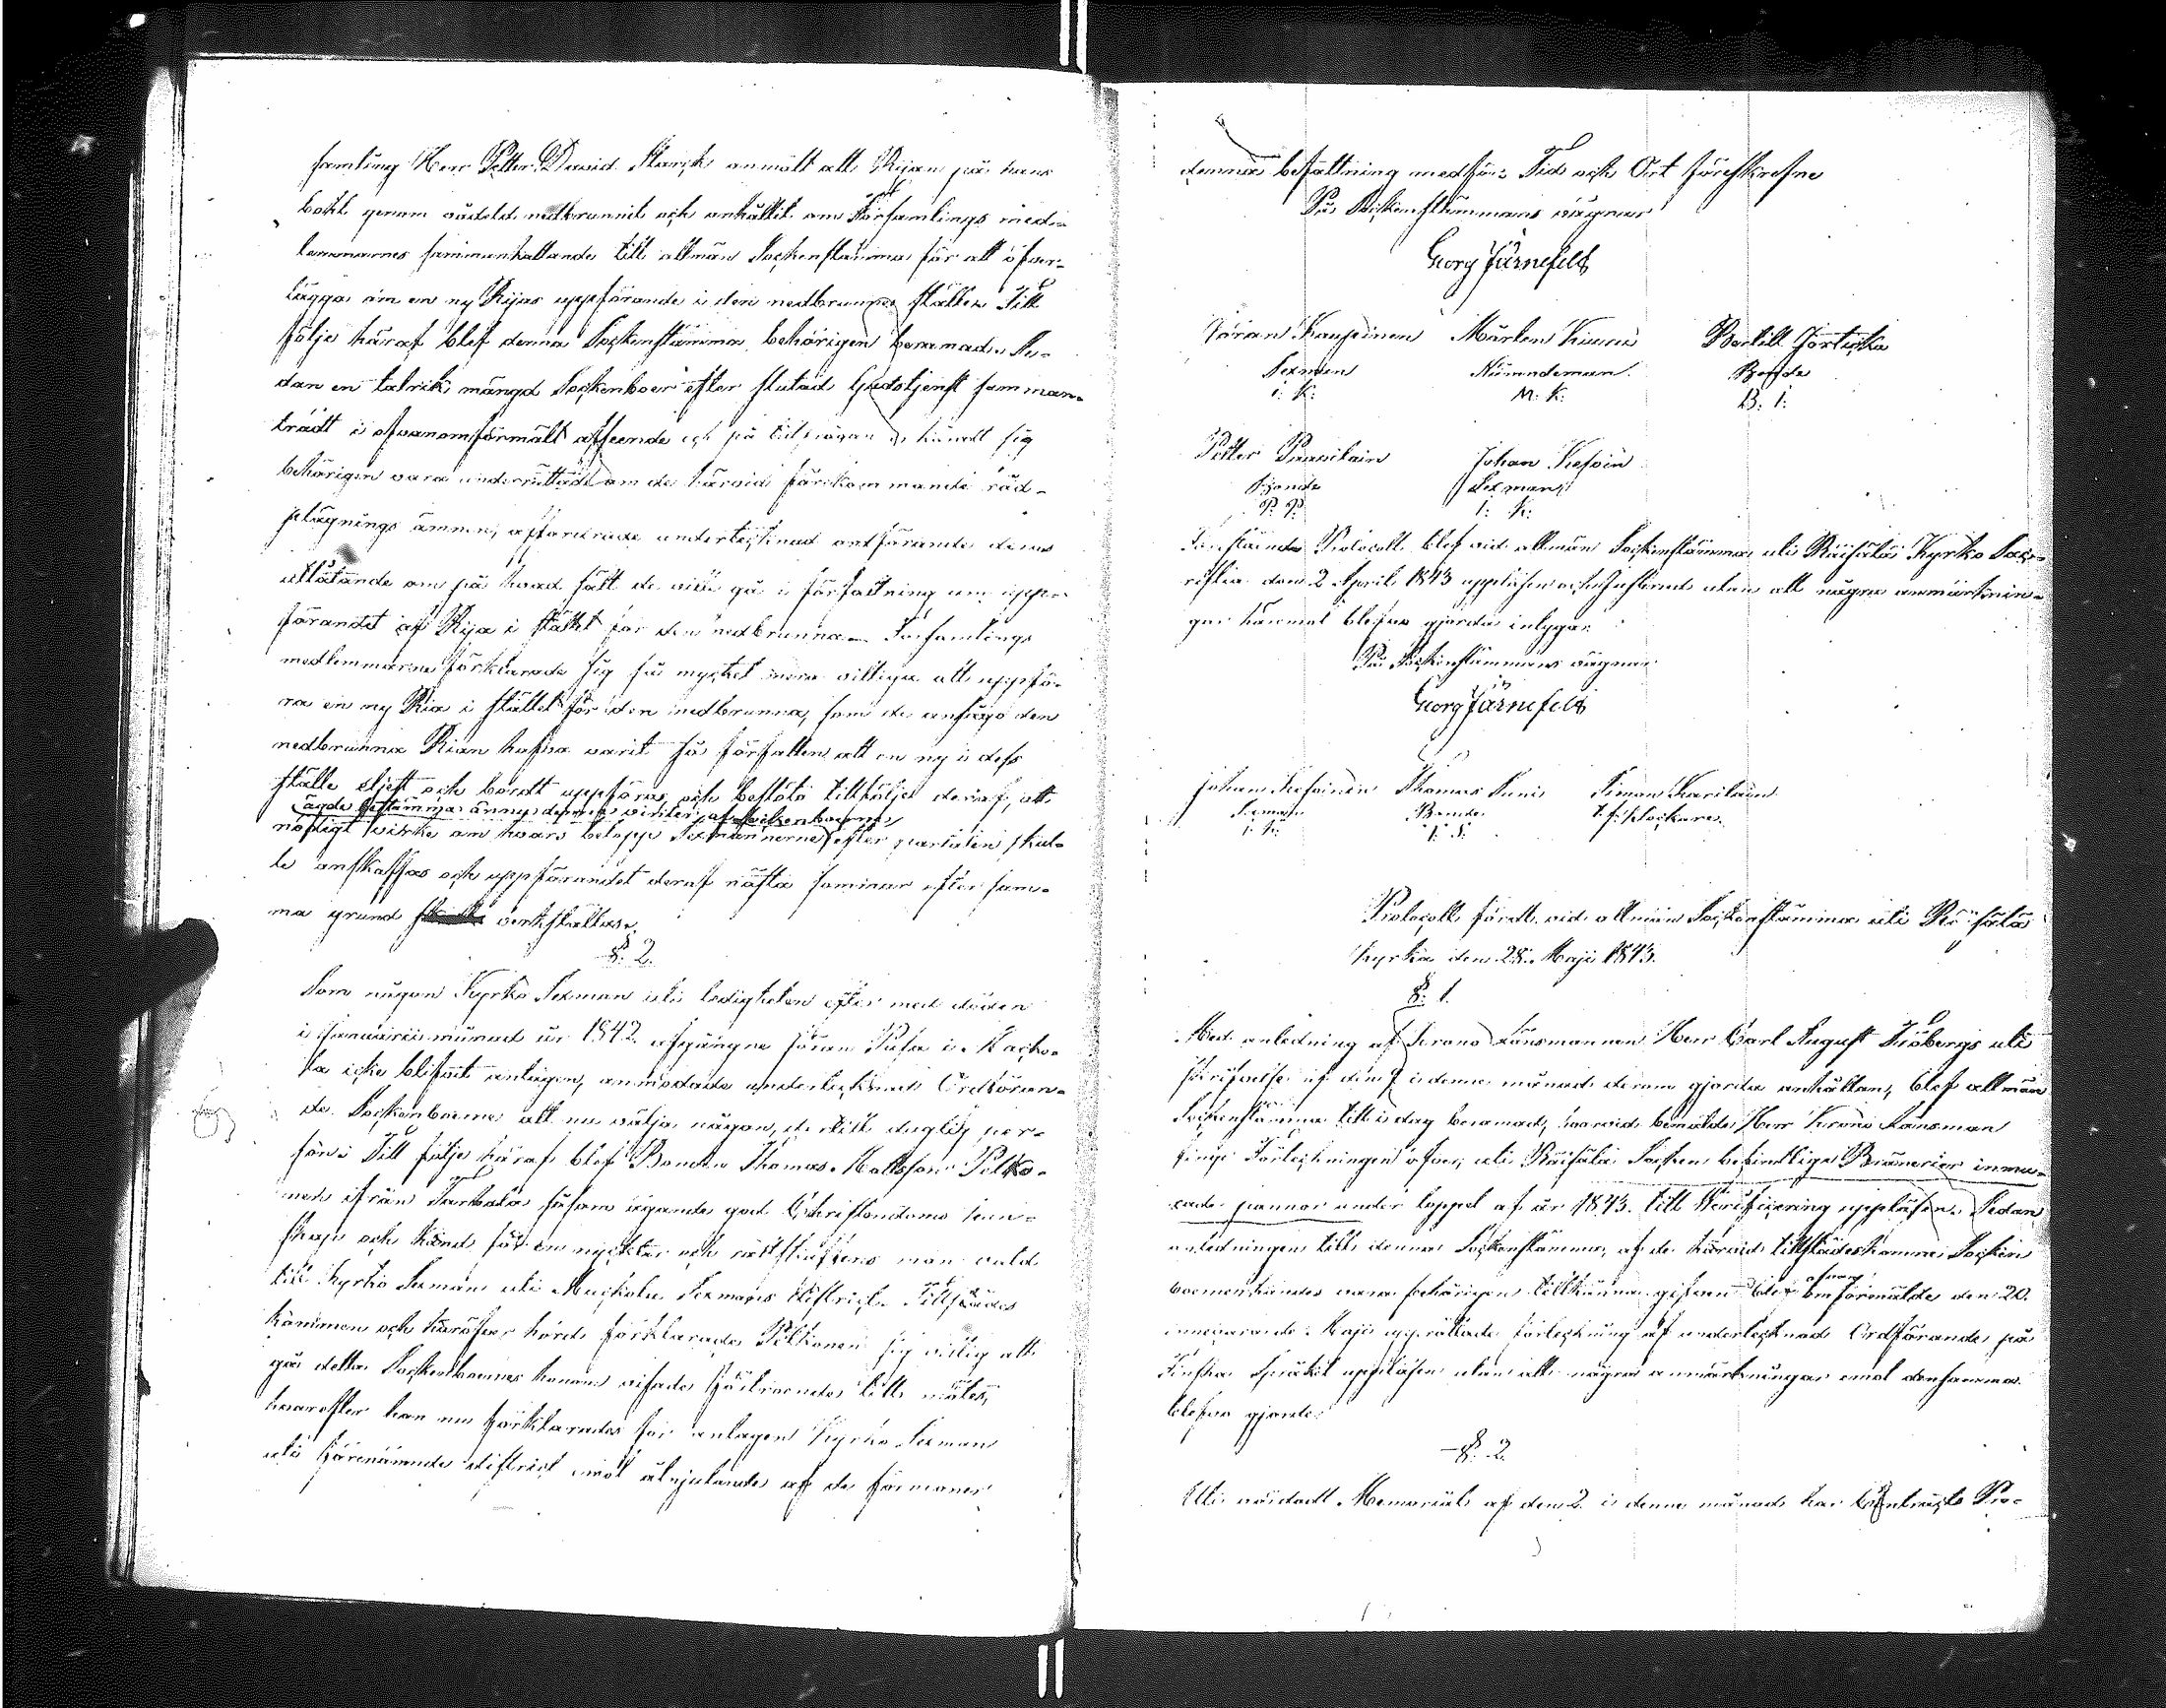 samling Herr Petter David Starck anmält att Rijan på hans
bohl genom vådeld nedbrunnit och anhållit om Församlings med-
lemmarnes sammankallande till allmän Sockenstämma för att öfver-
lägga om en ny Rijas uppförande i den nedbrunnas ställe. Till
följe häraf blef denna Sockenstämma behörigen beramad. Se-
dan en talrik mängd Sockenboer efter slutad Gudstjenst samman-
trädt i ofvanomförmält afseende och på tillfrågan erkändt sig
behörigen vara underrättade om de härvid förekommande råd-
plägnings ämnen, affordrade undertecknad ordförande deras
utlåtande om på hvad sätt de vilja gå i författning om upp-
förandet af Rija i stället för den nedbrunna. Församlings
medlemmarne förklarade sig så mycket mera villiga att uppfö-
ra en ny Ria i stället för den nedbrunna, som de ansågo den
nedbrunna Rian hafva varit så förfallen att en ny i dess
ställe eljest och bordt uppföras, och beslöto tillfölje deraf, att
ägde bestämma ännu denna vinter af Sockenboerne
nödigt virke om hvars belopp Sexmännerne efter partalen skul-
le anskaffas och uppförandet deraf nästa sommar efter sam-
ma grund verkställas.
§. 2.
Som någon Kyrko Sexman uti ledigheten efter med döden
i Januarii månad år 1842 afgångne Jöran Pusa i Macko-
la icke blifvit antagen, anmodade undertecknad Ordföran-
de Sockenboerne att nu välja någon, dertill duglig per-
son. Till följe häraf blef Bonden Thomas Mattsson Pelko-
nen ifrån Tarhola såsom ägande god Christendoms kun-
skap och känd för en nyckter och rättskaffens man vald
till Kyrko Sexman uti Mackola Sexmans district. Tillstädes
kommen och häröfver hörd förklarade Pelkonen sig villig att
gå detta Sockenboernes honom visade förtroende till mötes,
hvarefter han nu förklarades för antagen Kyrko Sexman
uti förenämnde district emot åtnjutande af de förmoner
denna befattning medför. Tid och Ort föreskrefne
På Sockenstämmans vägnar
Georg Järnefelt
Jöran Kaupinen Mårten Kiuru Bertill
Sexman Nämndeman. Bonde
i. K. M. K. B. I.
Petter Puusilain Johan Kesvin
Bonde Sexman
P. P. I. K.
Förestående Protocoll blef vid allmän Sockenstämma uti Räisälä Kyrko Sac-
ristia den 2 April 1843 uppläsen och justerad utan att några anmärknin-
gar häremot blefvo gjorda intygar
På Sockenstämmans vägnar
Georg Järnefelt
Johan Thomas Simon Karilain
Sexman Bonde t. f. klockare.
I. K. T. S.
Protocoll fördt vid allmän Sockenstämma uti Räisälä
Kyrka den 28. Maji 1843.
§. 1.
Med anledning af Krono Länsmannen Herr Carl August Fröbergs uti
skrifvelse af den 9 i denne månad derom gjorda anhållan, blef allmän
Sockenstämma till i dag beramad, hvarvid bemälde Herr Krono Länsman
finge Förteckningen öfver, uti Räisälä Socken befintlige Brännerier inmu-
rade pannor under loppet af år 1843. till Verificering uppläsen. Sedan
anledningen till denna Sockenstämma, af de härvid tillstädeskomne Socken
boerne kändes vara behörigen tillkänna gifven blef ofvan omförmälde den 20.
innevarande Maji upprättade förteckning af undertecknad Ordförande på
Finska Språket uppläsen utan att några anmärkningar emot densamma
blefvo gjorde.
§. 2.
Uti Memorial af den 2. i denne månad har Contracts Pro-